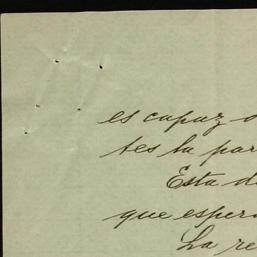 es capaz
tes la par
Esta d
que esper
La re